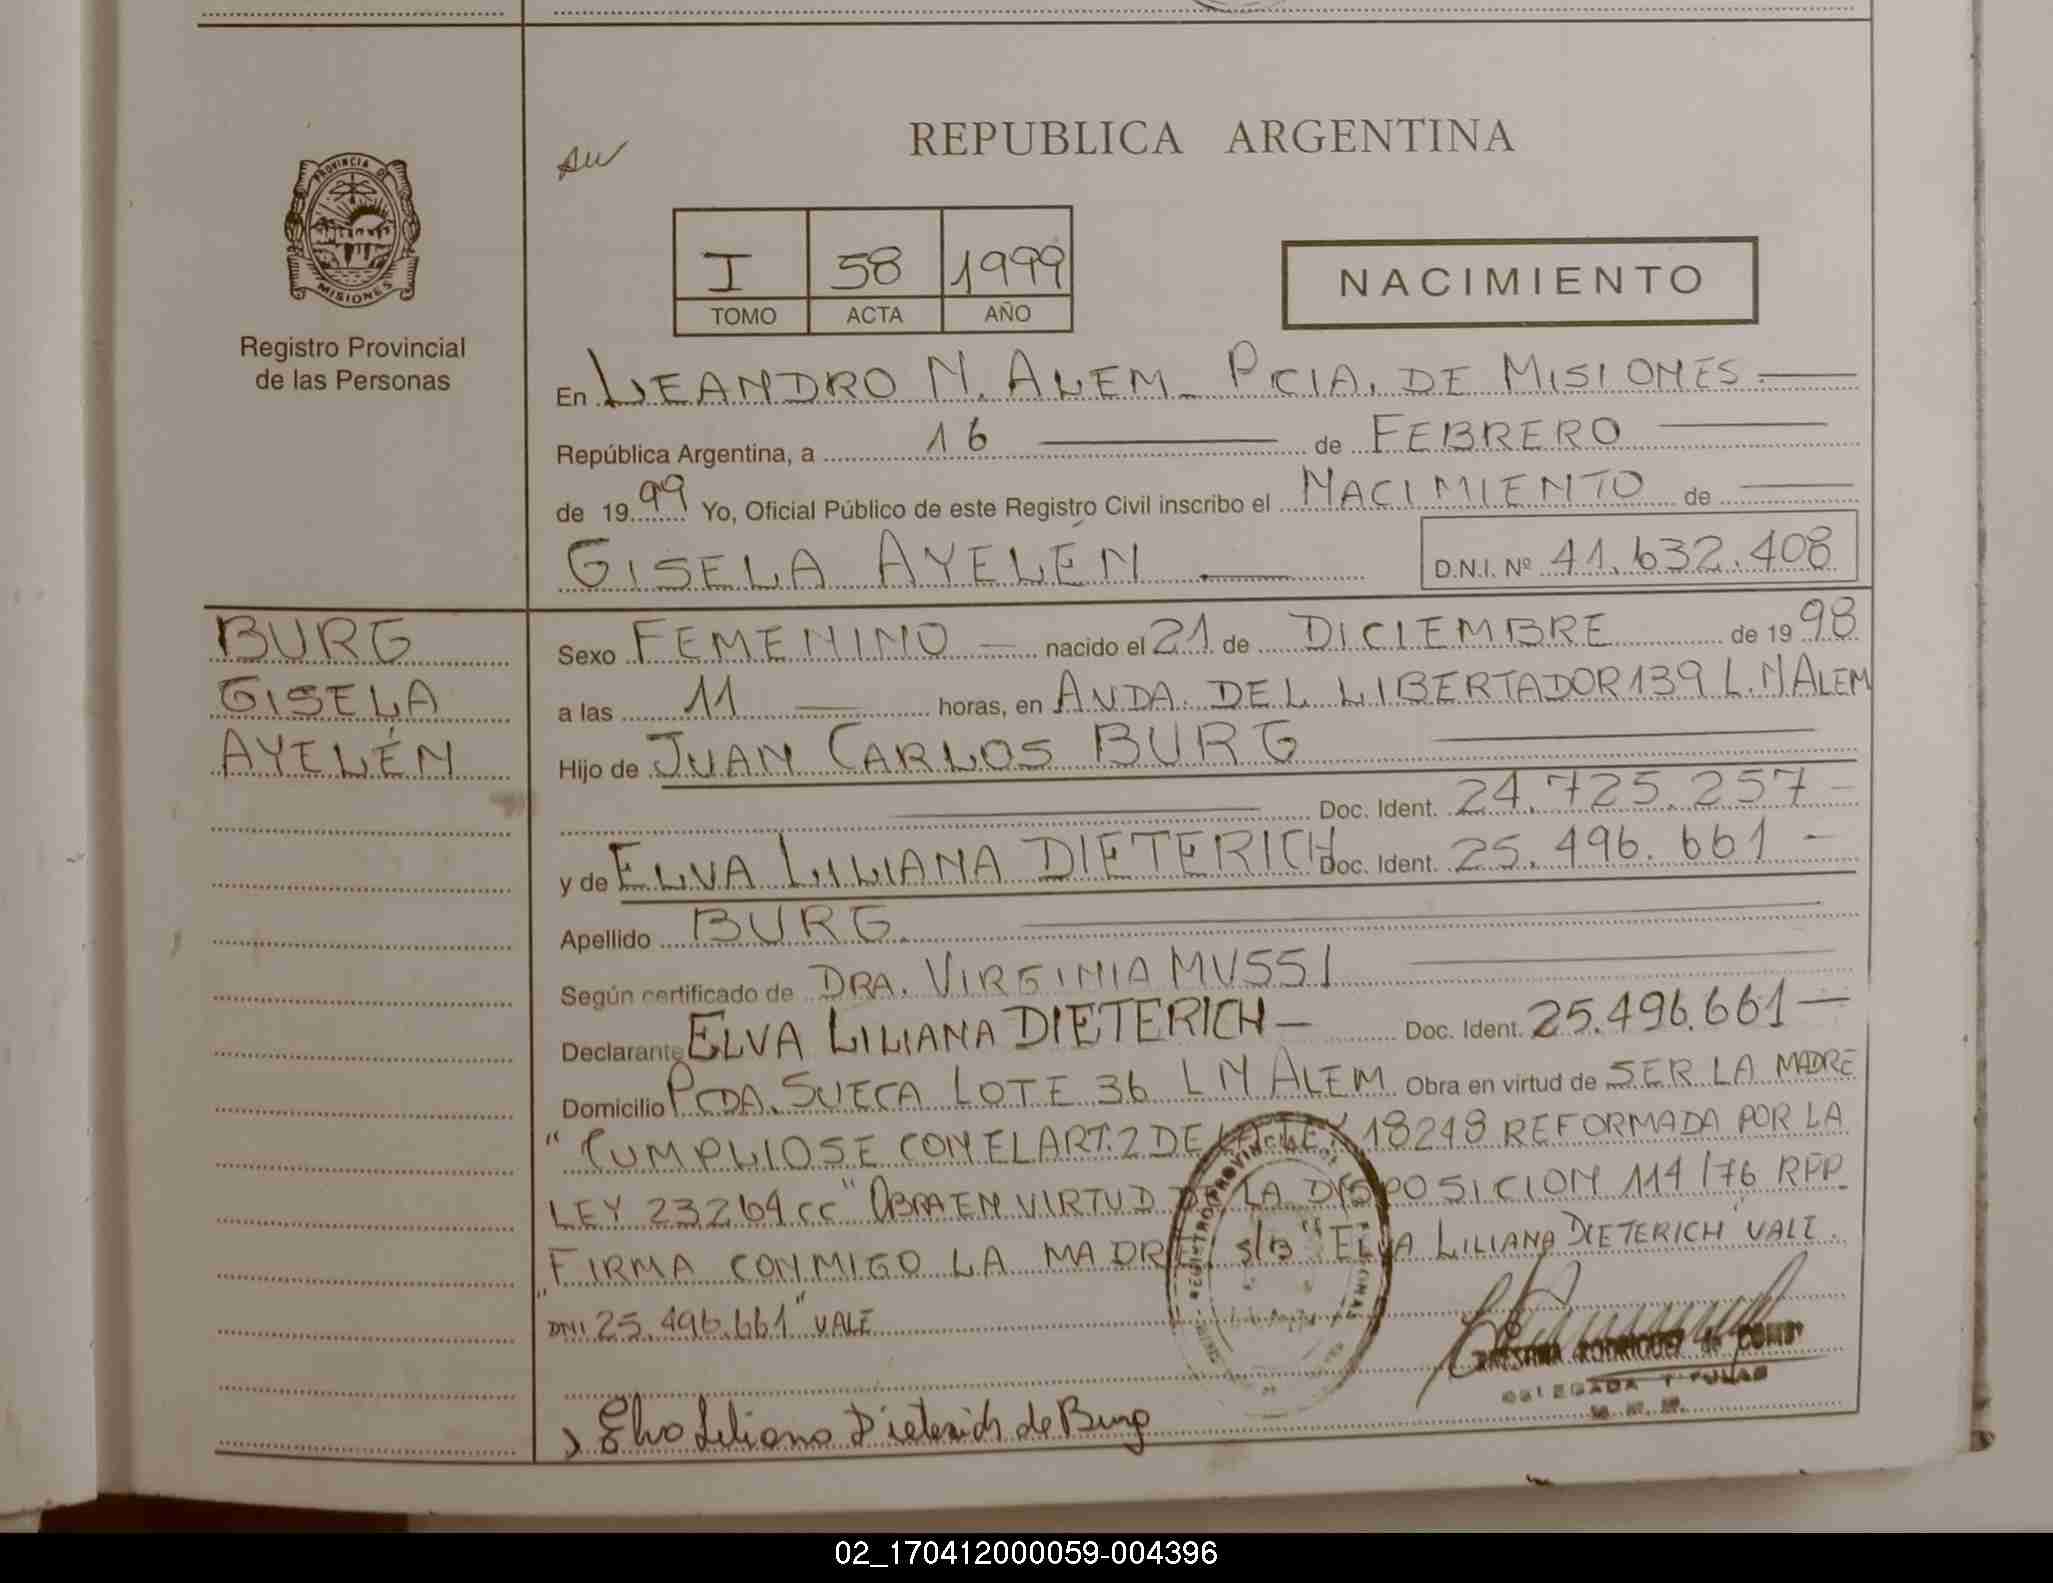 REPUBLICA ARGENTINA
PROVINCIA DE
MISIONES
Registro Provincial
de las Personas
I 58 1999
TOMO ACTA AÑO
NACIMIENTO
En LEANDRO N. ALEM - PCIA. DE MISIONES.
República Argentina, a 16 de FEBRERO
de 1999 Yo, Oficial Público de este Registro Civil inscribo el NACIMIENTO de
GISELA AYELÉN D.N.I. Nº 41.632.408
BURG
GISELA
AYELÉN
Sexo FEMENINO nacido el 21 de DICIEMBRE de 1998
a las 11 horas, en AVDA. DEL LIBERTADOR 139 L.N ALEM
Hijo de JUAN CARLOS BURG
Doc. Ident. 24.725.257
y de ELVA LILIANA DIETERICH Doc. Ident. 25.496.661
Apellido BURG.
Según certificado de DRA. VIRGINIA MUSSI
Declarante ELVA LILIANA DIETERICH Doc. Ident. 25.496.661
Domicilio PCDA. SUECA LOTE 36 L N ALEM Obra en virtud de SER LA MADRE
"CUMPLIOSE CON EL ART. 2 DE LA LEY 18248 REFORMADA POR LA
LEY 23264 CC" OBRA EN VIRTUD DE LA DISPOSICION 114/76 RPP.
FIRMA CONMIGO LA MADRE. S/B "ELVA LILIANA DIETERICH" VALE.
"DNI 25.496.661" VALE
RODRIGUEZ de
DELEGADA TITULAR
Elva Liliana Dieterich de Burg
02_170412000059-004396